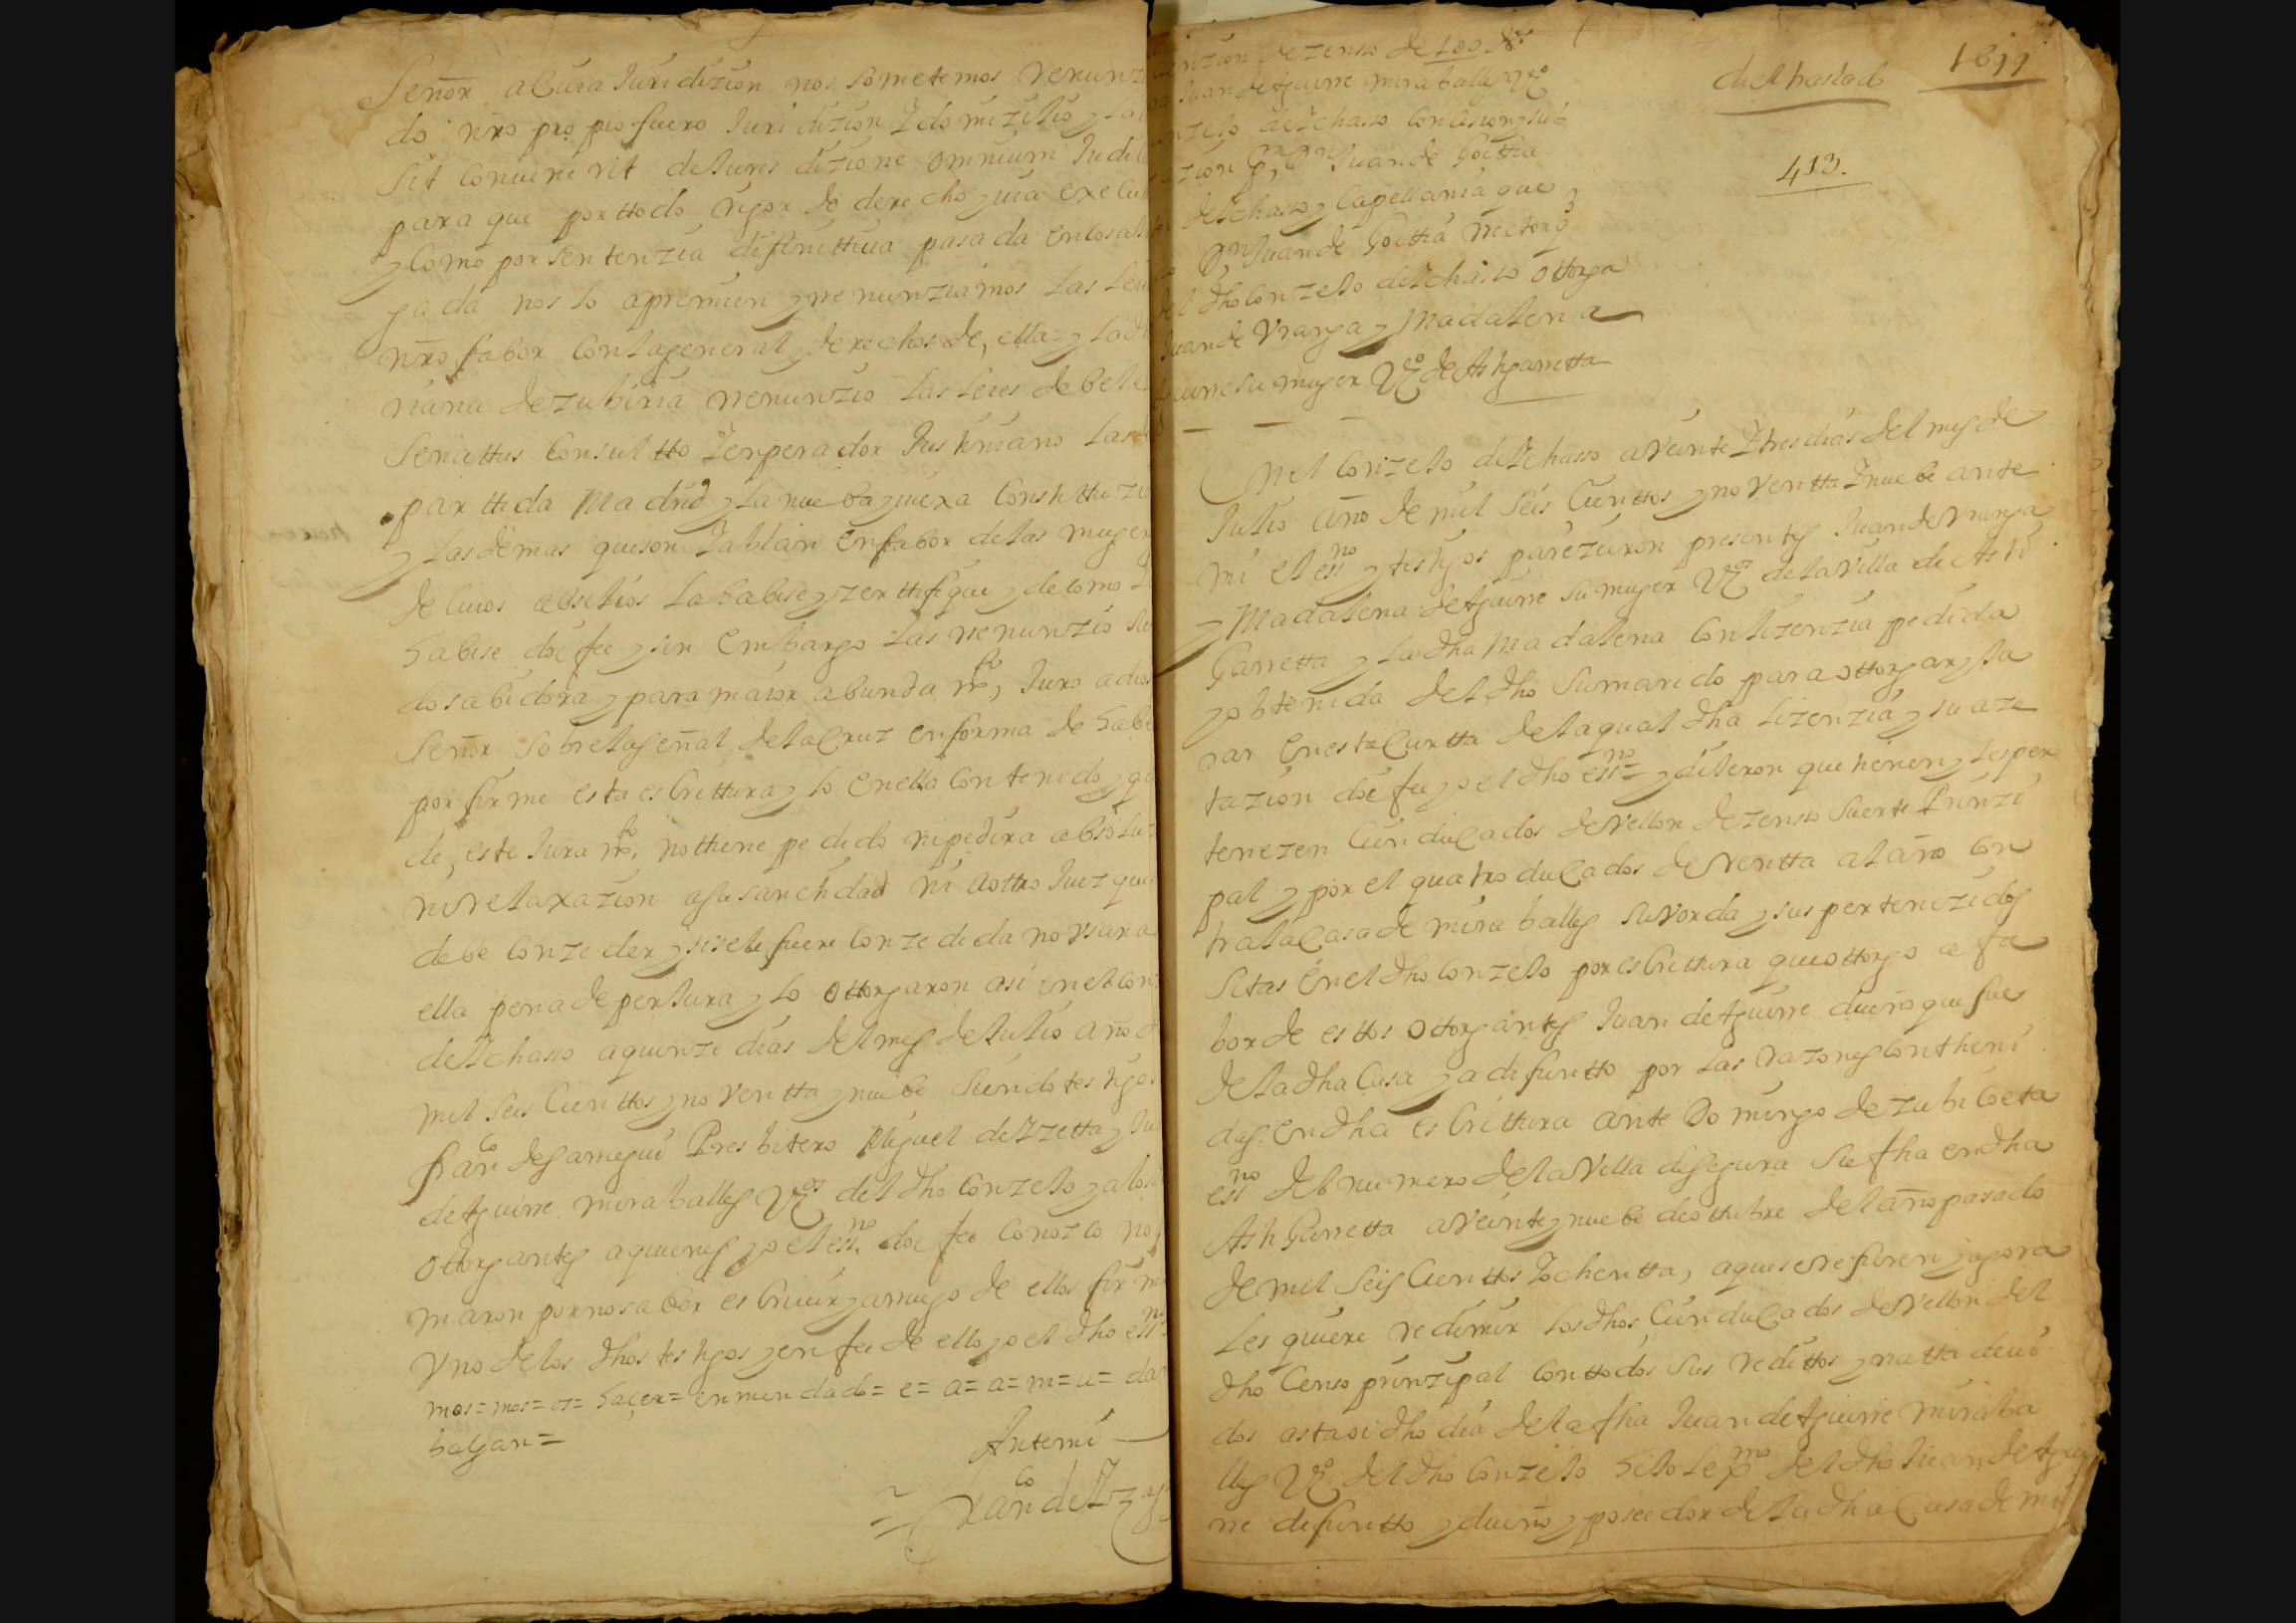 Señor acuia Juridizion nos sometemos renunz
do nrõ propio fuero Juridizion Y domizilio y la
sit conuenerit de Jurisdizione omnium Judi
para que por ttodo rigor de derecho y uia execu
y Como por sentenzia difinittiua pasada en cosa
gada nos lo apremien y renunziamos las leies
nrõ fabor Con la general y derechos de, ella= y la dh
riana de zubiria rrenunzio las leies de bele
Senattus Consultto Y enperador Justiniano las
parttida Madrid y la nueba y uiexa Constittuzio
y las demas que son Y ablan en fabor de las muger
de Cuios absilios la habise y zerttifique y de como
habise doi fee y sin embargo las rrenunzio
do sabidora y para maior abunda mto, Juro a dios
Señor sobre la señal de la Cruz en forma de habe
por firme esta escrittura y lo en ella Contenido y qu
de, este Jura mto, no thiene pedido ni pedira absolu
ni relaxazion a su santidad ni a ottro Juez que
debe Conzeder y si se le fuere Conzedida no vsara
ella pena de perJura y lo ottorgaron asi en el Con
de Ychaso a quinze dias del mes de Julio año d
mil seis Cienttos y noventta y nuebe siendo testigos
franco de Gamegui Presbitero Miguel de Yzetta y Ju
de Aguirre miraballes Vos del dho Conzejo y a los
ottorgantes a quienes yo el essno doi fee Conozco no f
maron por no saber escriuir y a ruego de ellos firm
Vno de los dhos testigos y en fee de ello yo el dho essno
mos= mos= os= haçer= enmendado= e= a= a= m= u= da
balgan=
Ante mi
franco de Yzag
enzion de zenso de 100 ds
Juan de Aguirre miraballes Vo
nzejo de Ychasso
zion Pr Dn Juan de Goittia
de Ychasso y Capellania que
Dn Juan de Goittia Rector
el dho Conzejo de Ychasso ottorga
Juan de Vranga y Madalena
guirre su muger Vo de Astigarretta
de Ychaso
1699
413.
En el Conzejo de Ychasso a veinte Y tres dias del mes de
Julio año de mil seis Cienttos y noventta Y nuebe ante
mi el essno y testigos parezieron presentes Juan de Vranga
y Madalena de Aguirre su muger Vos de la villa de Asti
Garretta y la dha Madalena Con lizenzia pedida
y obtenida del dho su marido para ottorgar y Ju
rar en esta Cartta de la qual dha lizenzia y su aze
tazion doi fee yo el dho essno= y dixeron que tienen y les per
tenezen Cien ducados de vellon de zenso suerte Prinzi
pal y por el quatro ducados de rentta al año Con
tra la Casa de miraballes su vorda y sus pertenezidos
sitas en el dho Conzejo por escrittura que ottorgo a fa
bor de esttos ottorgantes Juan de Aguirre dueño que fue
de la dha Casa ya difuntto por las razones Contheni
das en dha escrittura ante Domingo de zubicoeta
essno del numero de la villa de segura su fha en dha
Astigarretta a veinte y nuebe de ottubre del año pasado
de mil seis Cienttos Y ochentta, a que se refieren y agora
les quiere redimir los dhos Cien ducados de vellon del
dho Censo prinzipal Con ttodos sus redittos y ratta deui
dos asta oi dho dia de la fha Juan de Aguirre miraba
lles Vo del dho Conzejo hijo lexmo del dho Juan de Agui
rre difuntto y dueño y poseedor de la dha Casa de mi